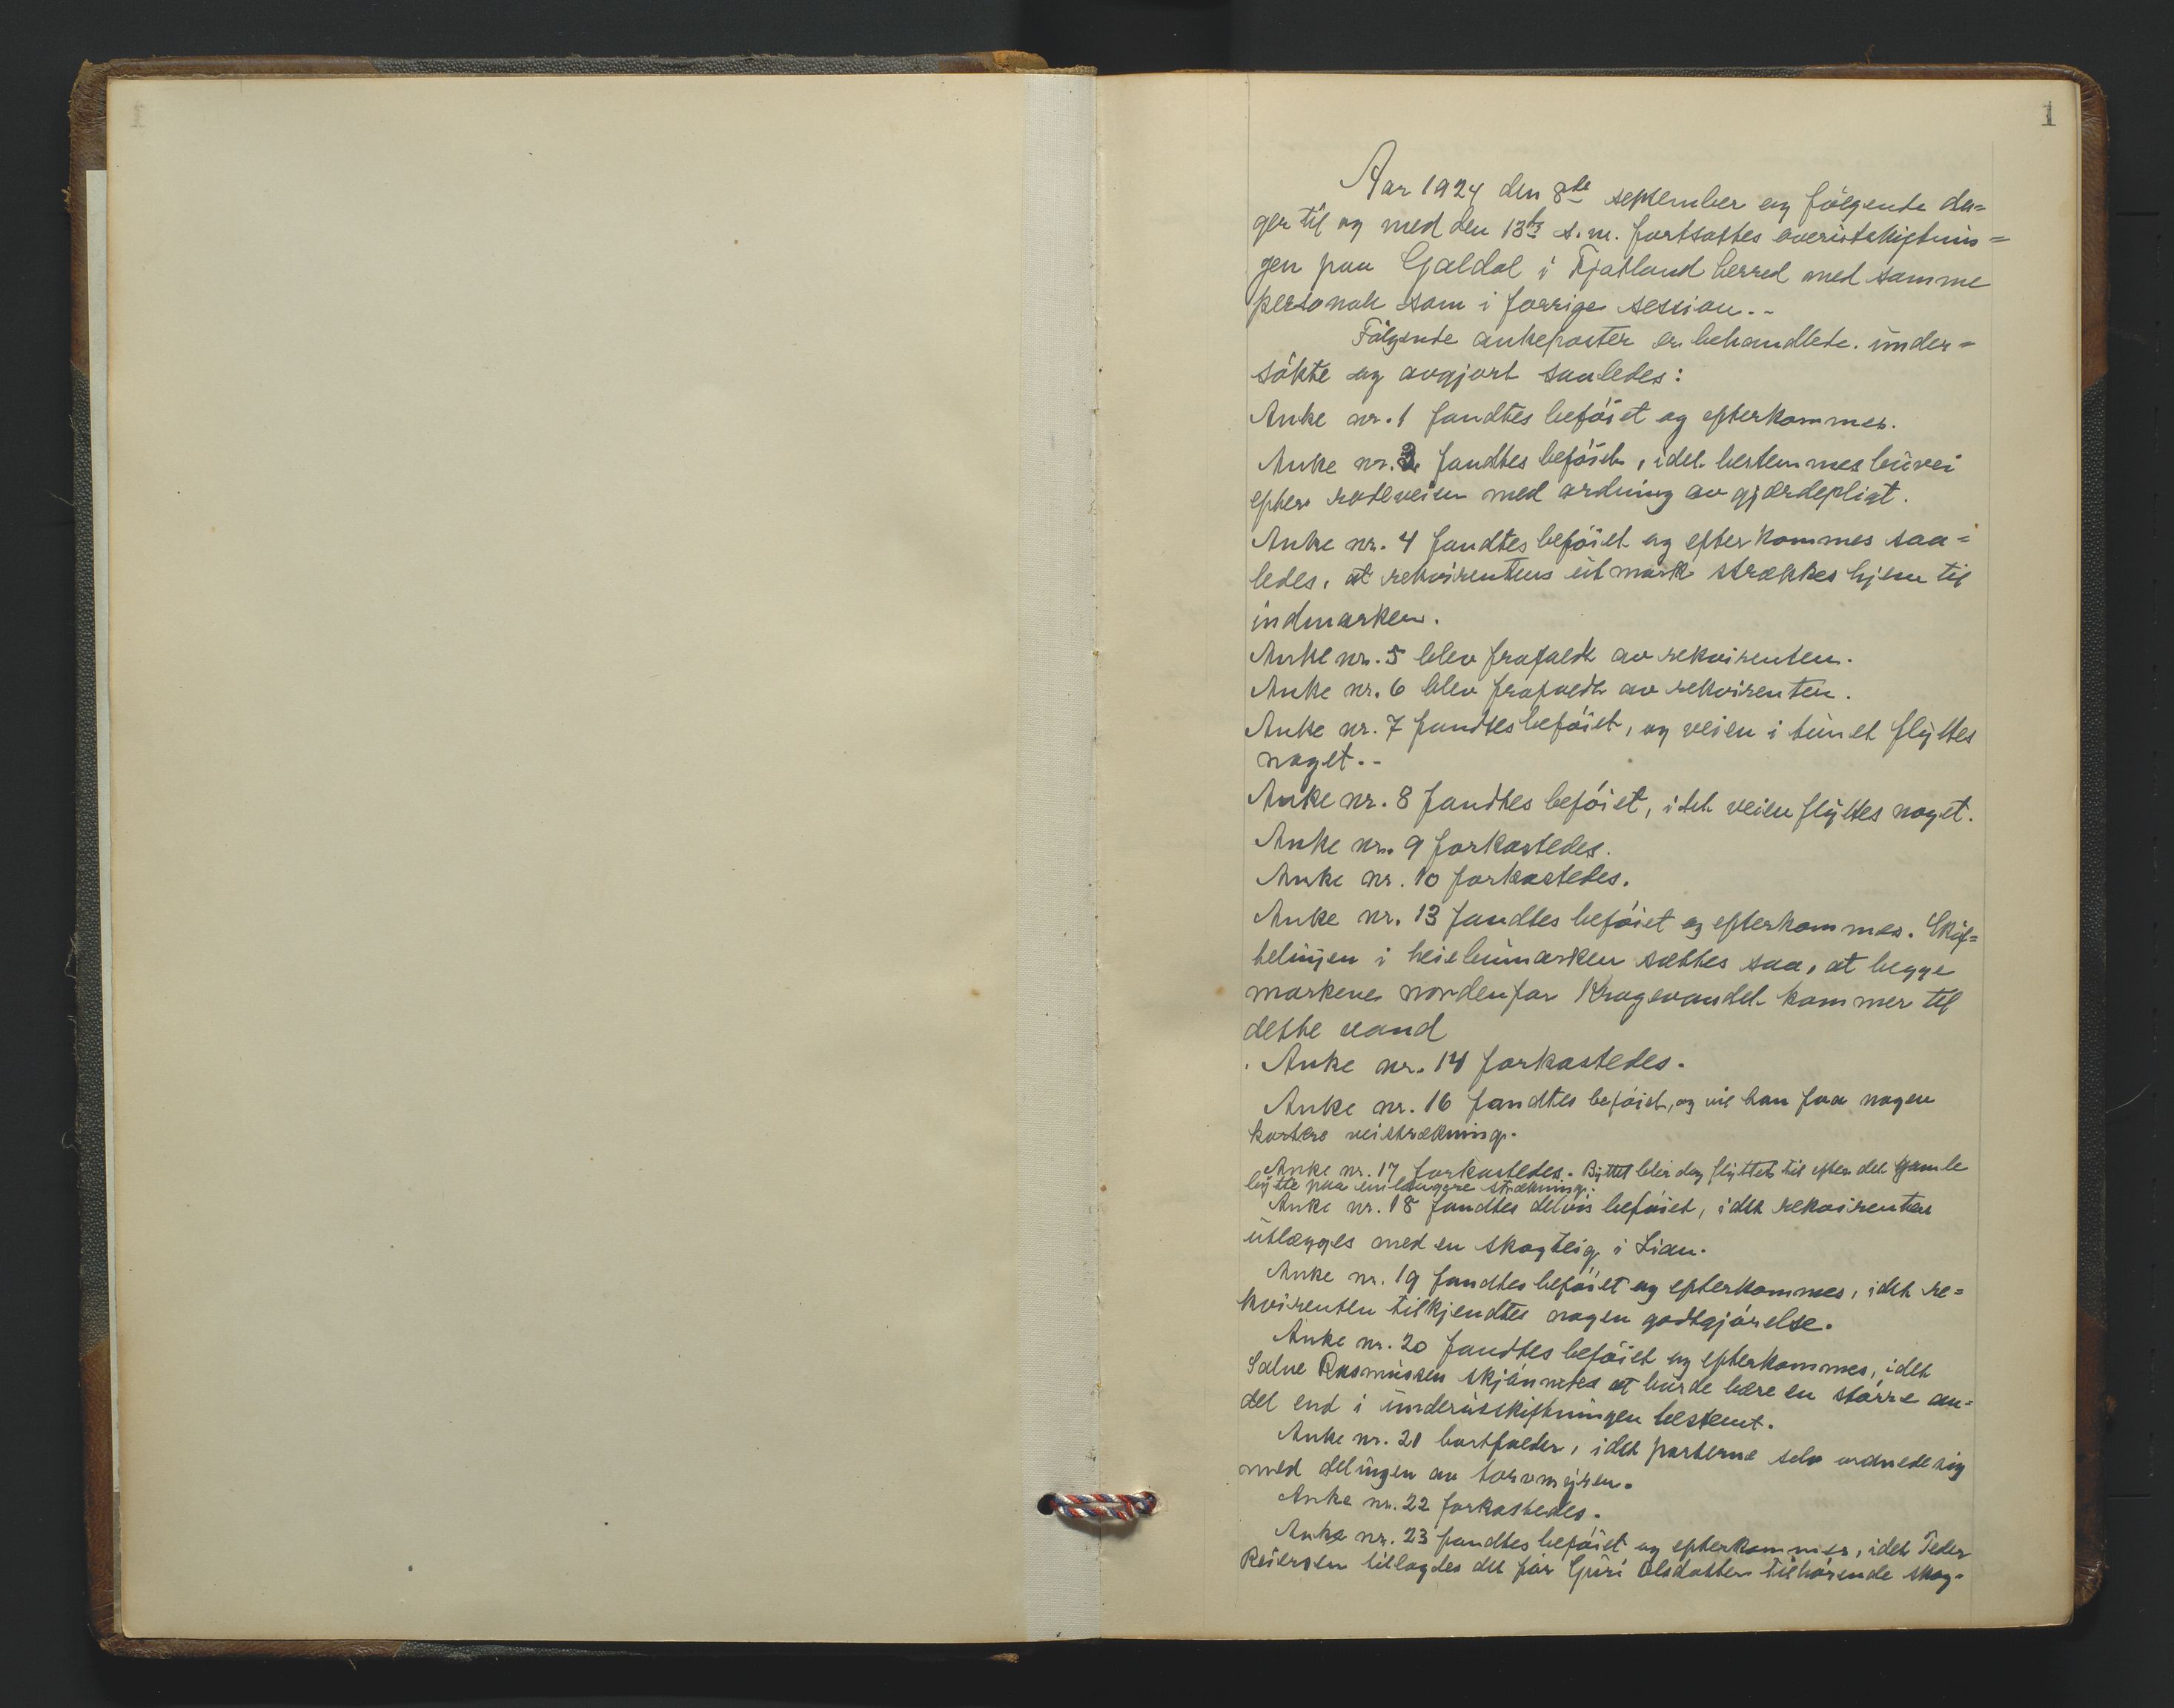 1
Aar 1924 den 8de september og følgende da=
ger til og med den 13de s.m. fortsattes overutskiftnin=
gen paa Galdal i Fjotland herred med samme
personale som i forrige session.-
Følgende ankeposter er behandlede. under=
søkte og avgjort saaledes:
Anke nr. 1 fandtes beføiet og efterkommes.
Anke nr. 3 fandtes beføiet, idet bestemmes buvei
efter rodeveien med ordning av gjærdepligt.
Anke nr. 4 fandtes beføiet og efterkommes saa=
ledes, at rekvirentens utmark strækkes hjem til
indmarken.
Anke nr. 5 blev frafaldt av rekvirenten.
Anke nr. 6 blev frafaldt av rekvirenten.
Anke nr. 7 fandtes beføiet, og veien i tunet flyttes
noget.-
Anke nr. 8 fandtes beføiet, idet veien flyttes noget.
Anke nr. 9 forkastedes.
Anke nr. 10 forkastedes.
Anke nr. 13 fandtes beføiet og efterkommes. Skif=
telinjen i heiebumarken sættes saa, at begge
markene nordenfor Kragevandet kommer til
dette vand
. Anke nr. 14 forkastedes.
Anke nr. 16 fandtes beføiet, og vil han faa nogen
kortere veistrækning.
Anke nr. 17 forkastedes. Byttet blir dog flyttet til efter det gamle
bytte paa en længere strækning.
Anke nr. 18 fandtes delvis beføiet, idet rekvirenten
utlægges med en skogteig i Lian.
Anke nr. 19 fandtes beføiet og efterkommes, idet re=
kvirenten tilkjendtes nogen godtgjørelse.
Anke nr. 20 fandtes beføiet og efterkommes, idet
Salve Rasmussen skjønnedes at burde bære en større an=
del end i underutskiftningen bestemt.
Anke nr. 21 bortfalder, idet parterne selv ordnede sig
med delingen av torvmyren.
Anke nr. 22 forkastedes.
Anke nr. 23 fandtes beføiet og efterkommes, idet Peder
Reiersen tillagdes det før Guri Olsdatter tilhørende skog-